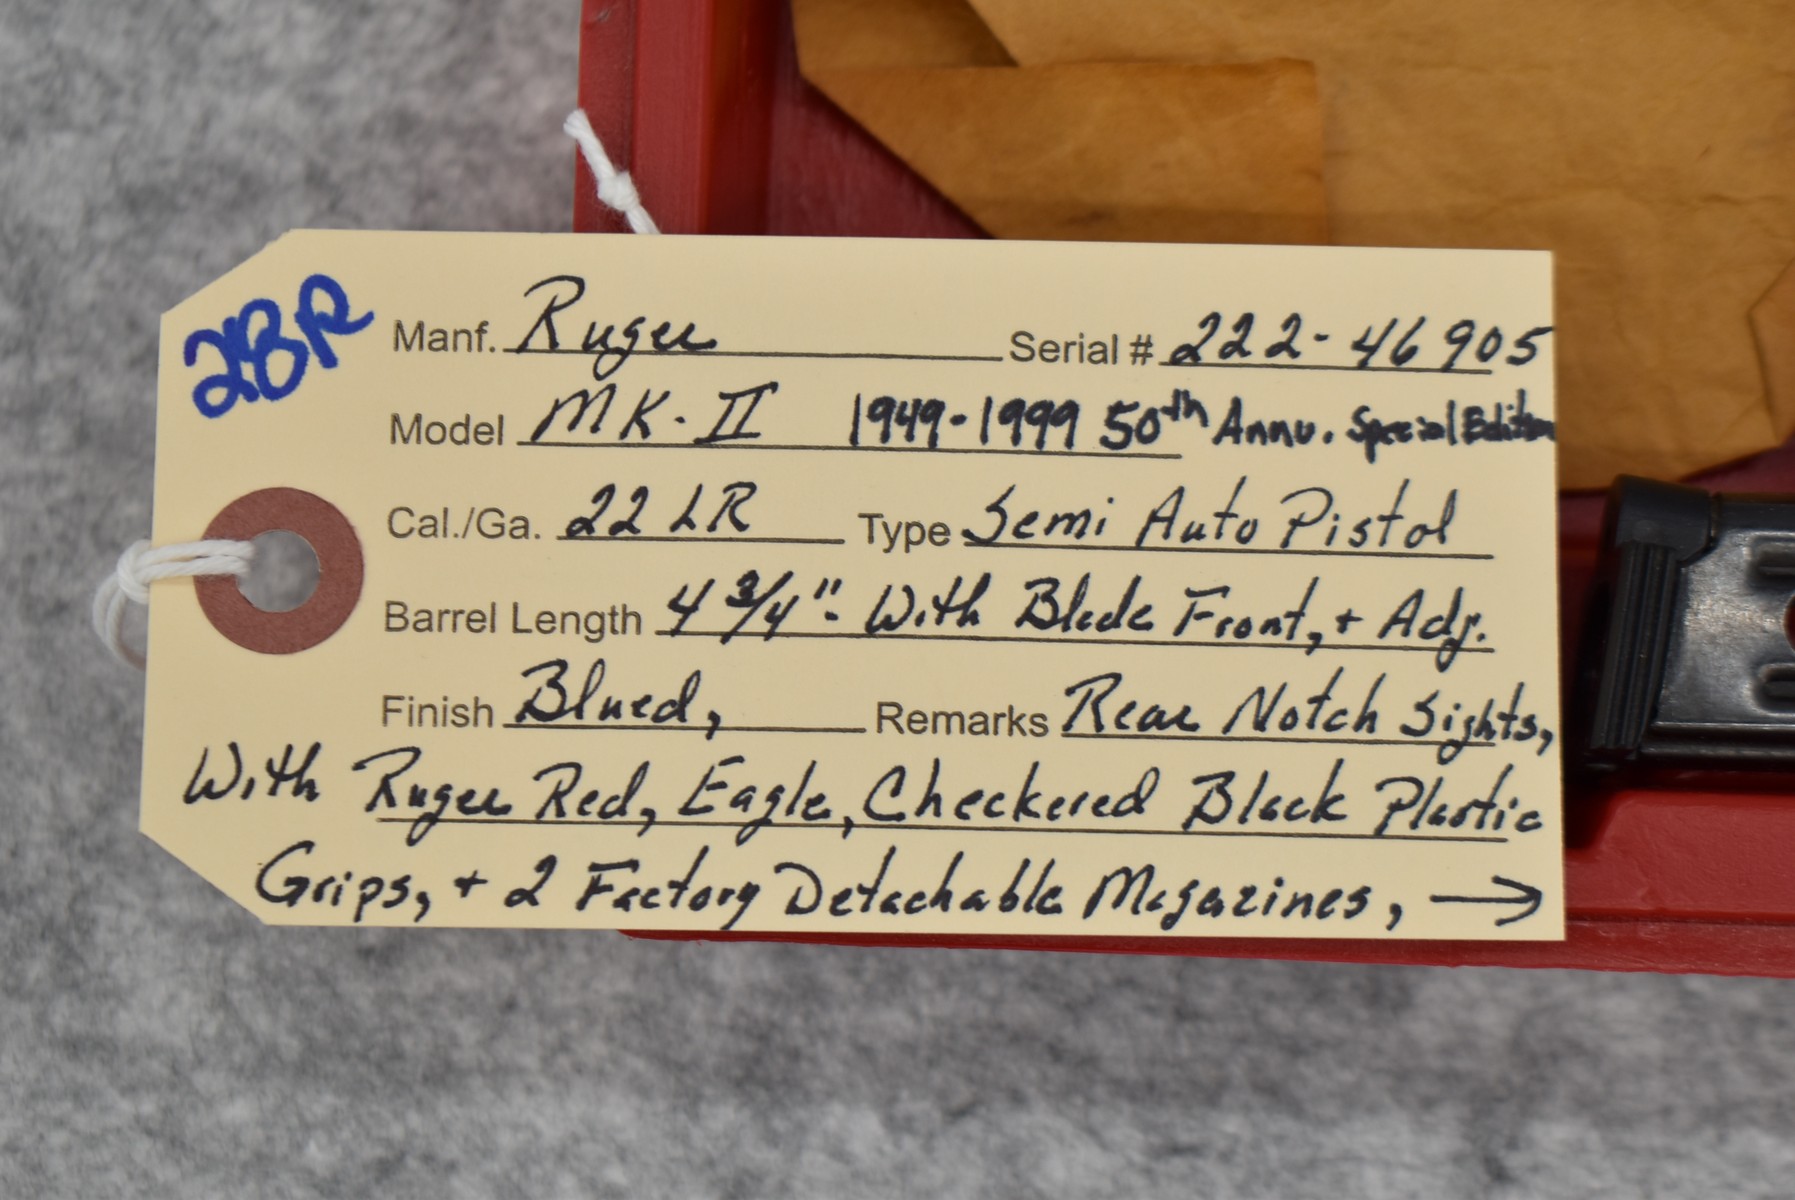 28R
Manf. Ruger Serial # 222-46905
Model MK-II 1949-1999 50th Annv. Special Edition
Cal./Ga. 22 LR Type Semi Auto Pistol
Barrel Length 4 3/4"- With Blade Front, + Adj.
Finish Blued, Remarks Rear Notch Sights,
With Ruger Red, Eagle, Checkered Black Plastic
Grips, + 2 Factory Detachable Magazines, →